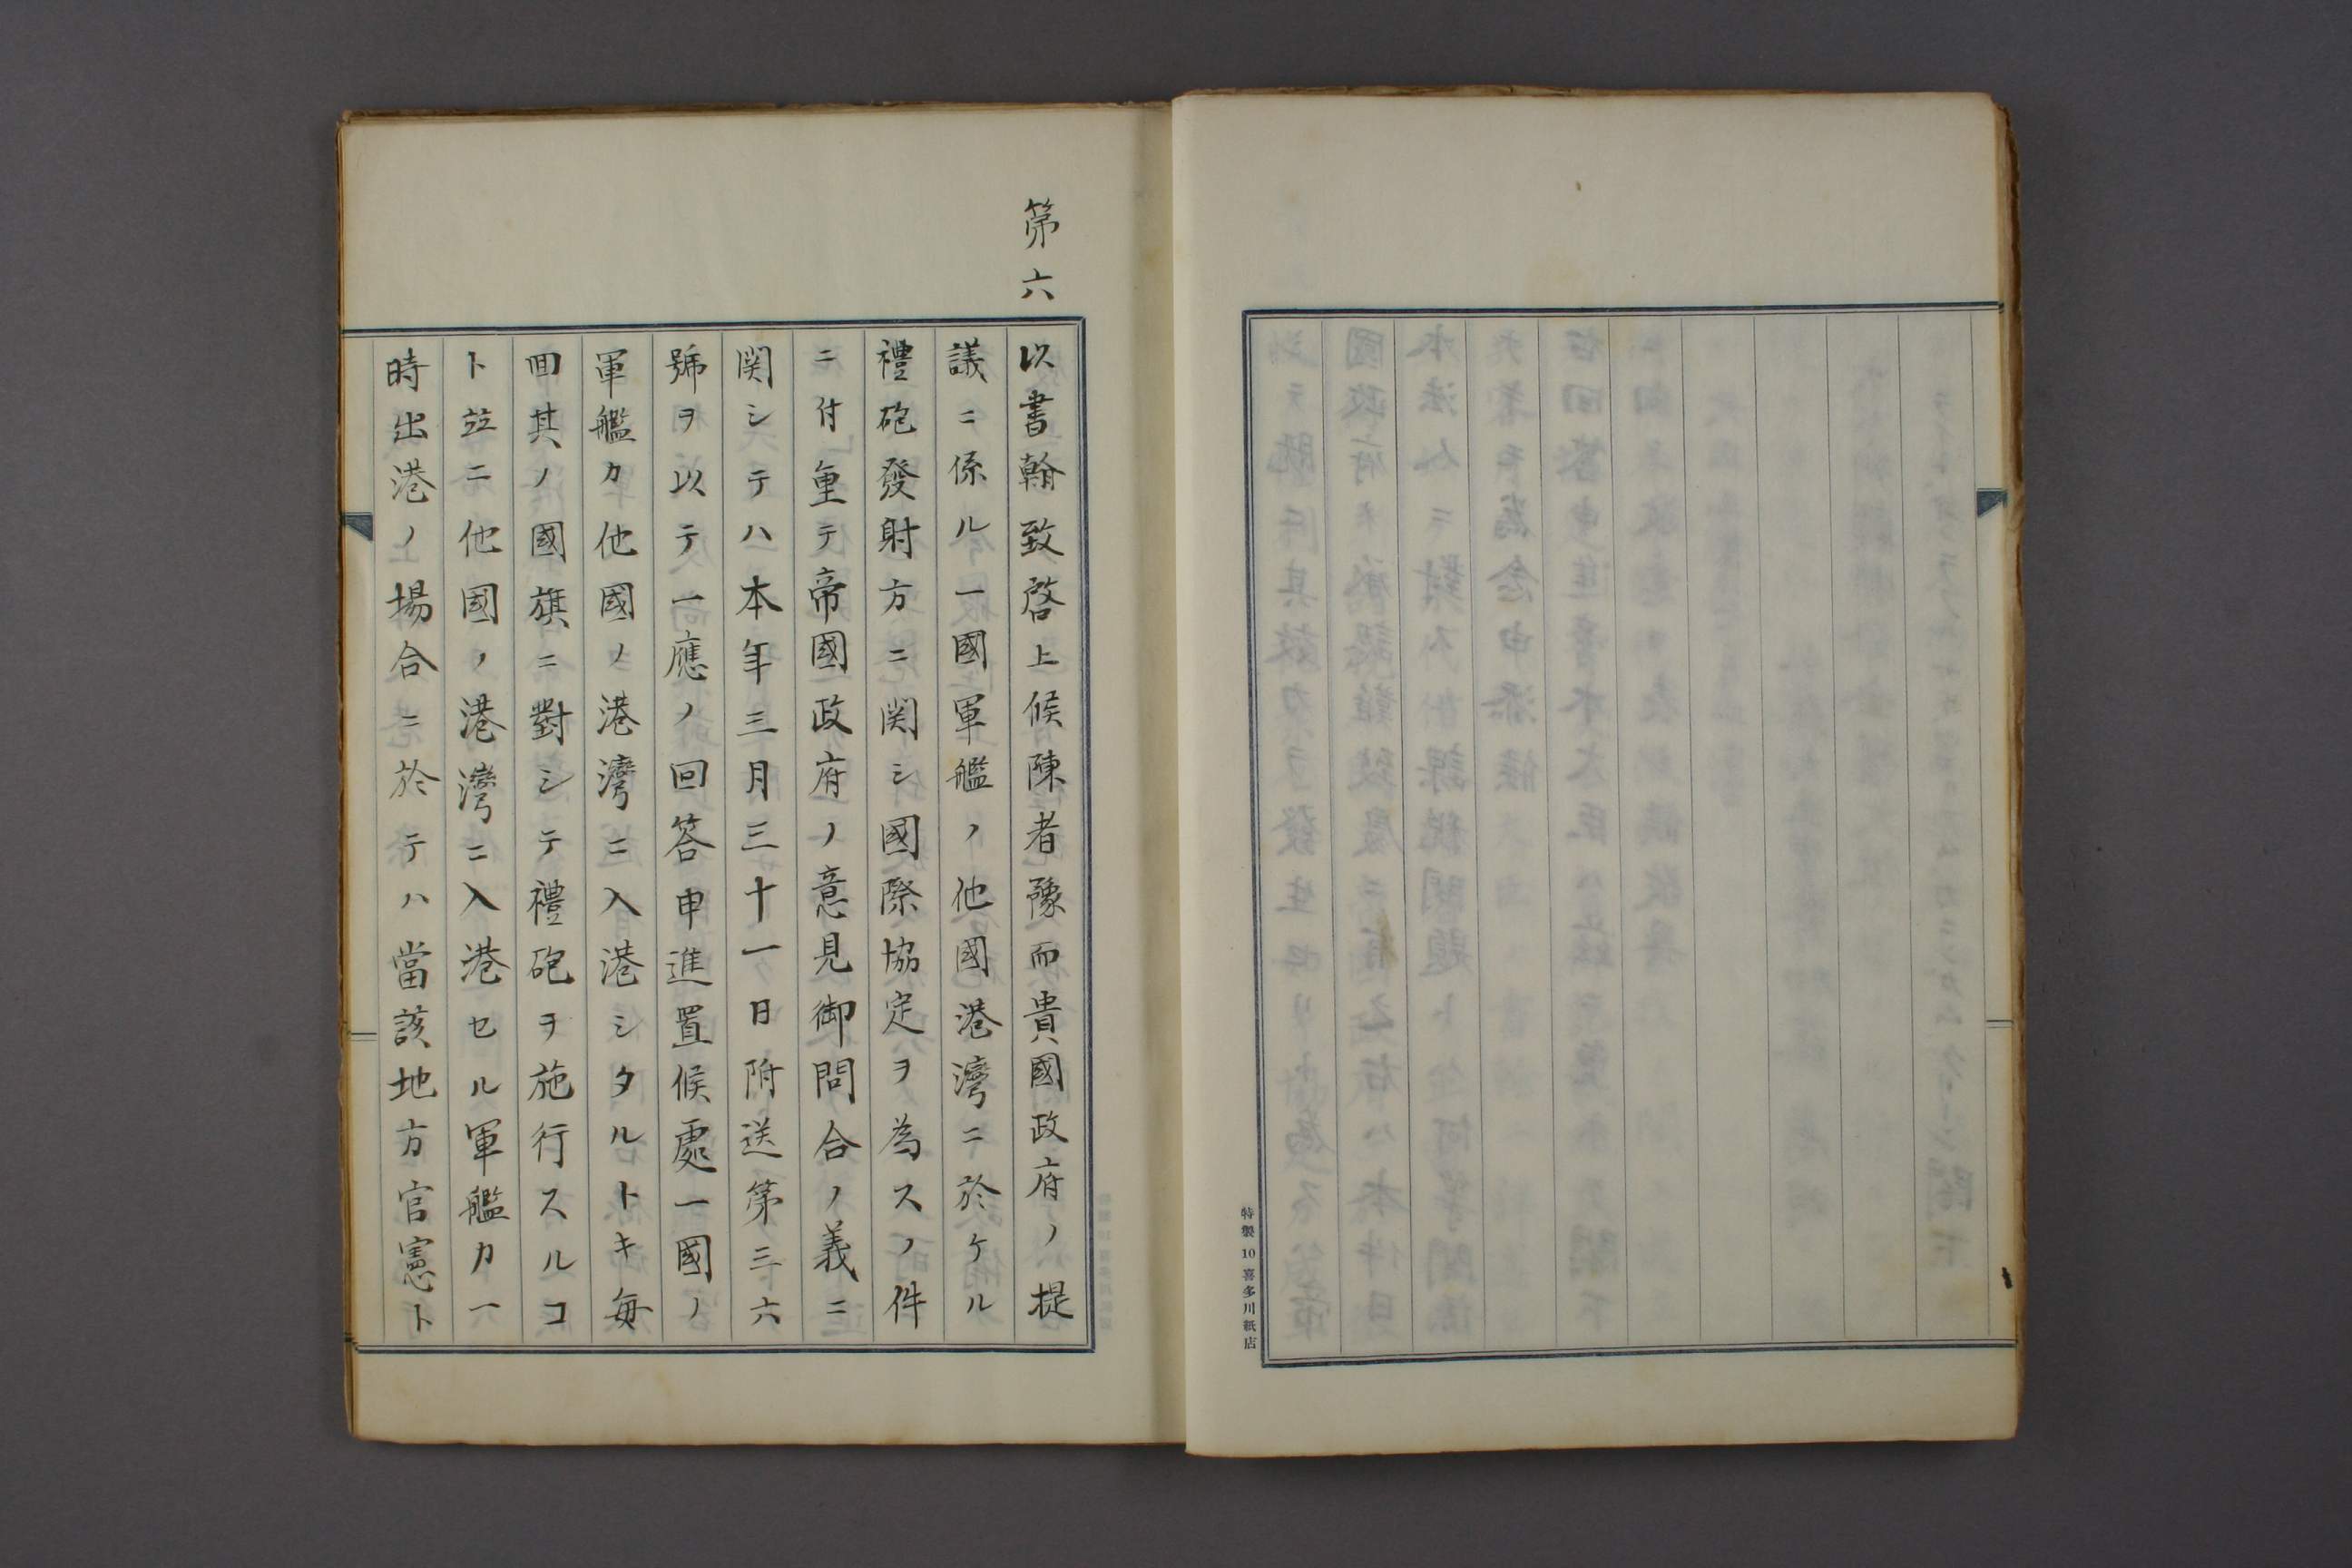 特製10喜多川紙店
第六
以書翰致啓上候陳者豫而貴國政府ノ提
議ニ係ル一國軍艦ノ他國港灣ニ於ケル
禮砲發射方ニ関シ國際協定ヲ為スノ件
ニ付重テ帝國政府ノ意見御問合ノ義ニ
関シテハ本年三月三十一日附送第三六
號ヲ以テ一應ノ回答申進置候處一國ノ
軍艦カ他國ノ港灣ニ入港シタルトキ毎
囬其ノ國旗ニ對シテ禮砲ヲ施行スルコ
ト竝ニ他國ノ港灣ニ入港セル軍艦カ一
時出港ノ場合ニ於テハ當該地方官憲ト